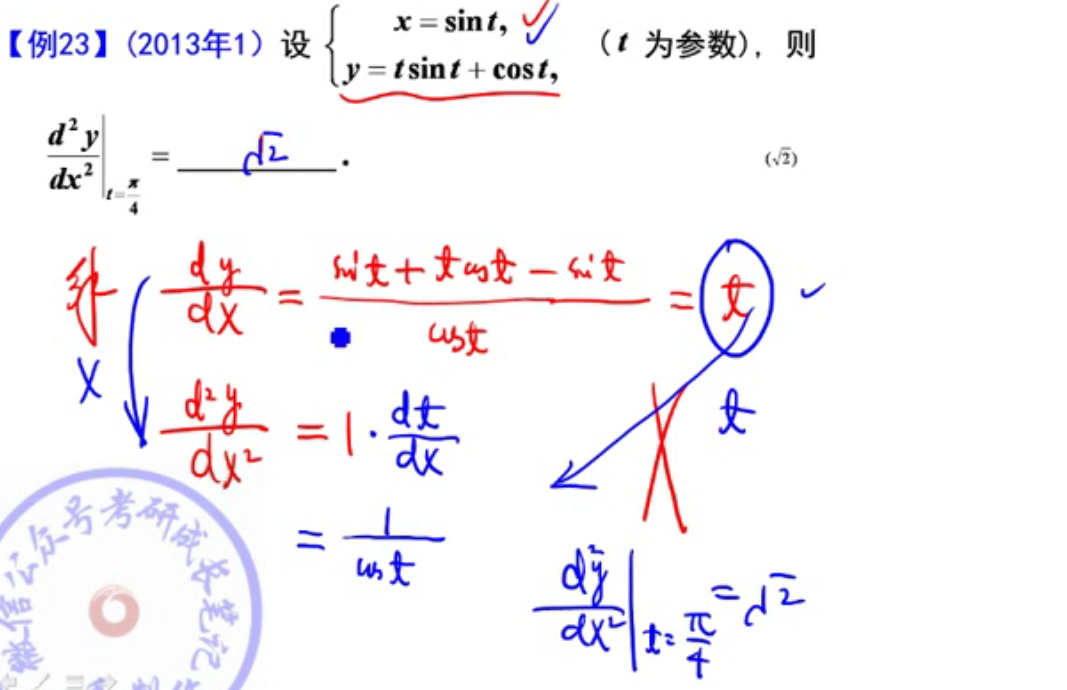 【例23】(2013年1) 设 { x = sin t, y = t sin t + cos t, (t 为参数), 则
d²y/dx² |t=π/4 = √2 . (√2)
dy/dx = (sin t + t cos t − sin t)/cos t = t
x
d²y/dx² = 1 · dt/dx
t
= 1/cos t
d²y/dx² |t=π/4 = √2
微信公众号考研成长笔记